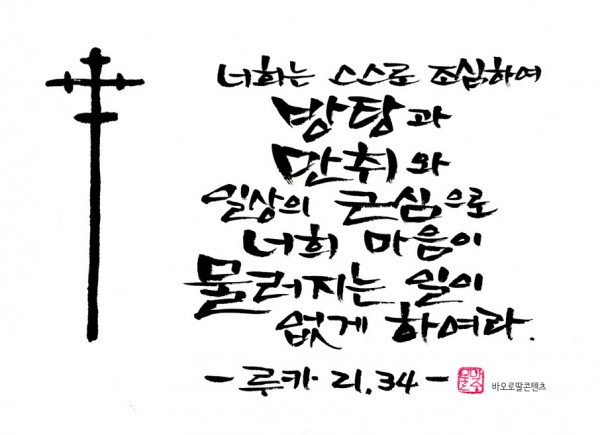 너희는 스스로 조심하여
방탕과
만취와
일상의 근심으로
너희 마음이
물러지는 일이
없게 하여라.
- 루카 21,34 -
바오로딸콘텐츠